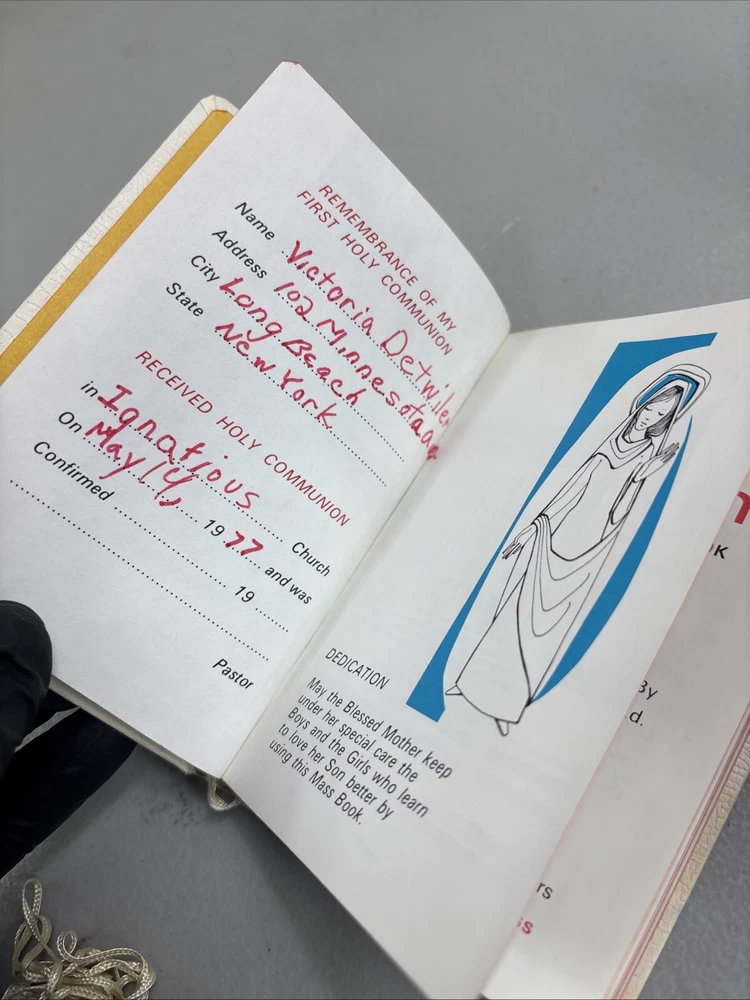 REMEMBRANCE OF MY
FIRST HOLY COMMUNION
Name Victoria Detwiler
Address 102 Minnesota Ave
City Long Beach
State New York
RECEIVED HOLY COMMUNION
in Ignatious Church
On May 14, 1977 and was
Confirmed 19
Pastor
DEDICATION
May the Blessed Mother keep
under her special care the
Boys and the Girls who learn
to love her Son better by
using this Mass Book.